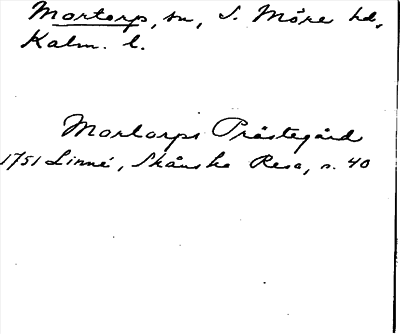 Mortorp, sn, S. Möre hd,
Kalm. l.
Mortorps Prästegård
1751 Linné, Skånska Resa, s. 40